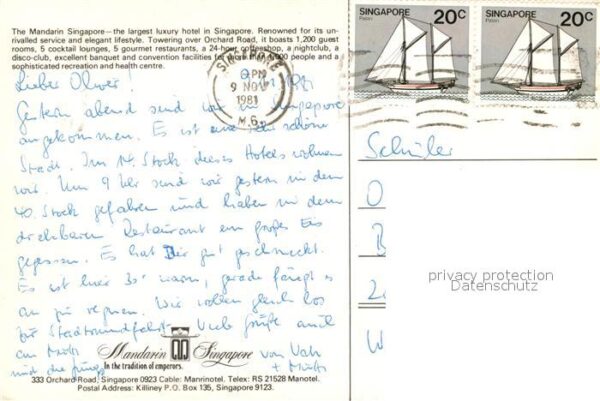 The Mandarin Singapore—the largest luxury hotel in Singapore. Renowned for its un-
rivalled service and elegant lifestyle. Towering over Orchard Road, it boasts 1,200 guest
rooms, 5 cocktail lounges, 5 gourmet restaurants, a 24-hour coffeeshop, a nightclub, a
disco-club, excellent banquet and convention facilities for more than people and a
sophisticated recreation and health centre.
SINGAPORE
20c
Patari
SINGAPORE
20c
SINGAPORE
PM
9 NOV
1981
M.6.
Lieber Oliver!
Gestern abend sind wir in Singapore
angekommen. Es ist eine sehr schöne
Stadt. Im 14. Stock dieses Hotels wohnen
wir. Um 9 Uhr sind wir gestern in den
40. Stock gefahren und haben in dem
drehbaren Restaurant ein großes Eis
gegessen. Es hat gut geschmeckt.
Es ist hier 30° warm, gerade fängt es
an zu regnen. Wir wollen gleich los
zur Stadtrundfahrt. Viele Grüße auch
an
und die Jungs
von Vati
+ Mutti
Schüler
O
B
2
W
privacy protection
Datenschutz
Mandarin Singapore
In the tradition of emperors.
333 Orchard Road, Singapore 0923 Cable: Manrinotel. Telex: RS 21528 Manotel.
Postal Address: Killiney P.O. Box 135, Singapore 9123.